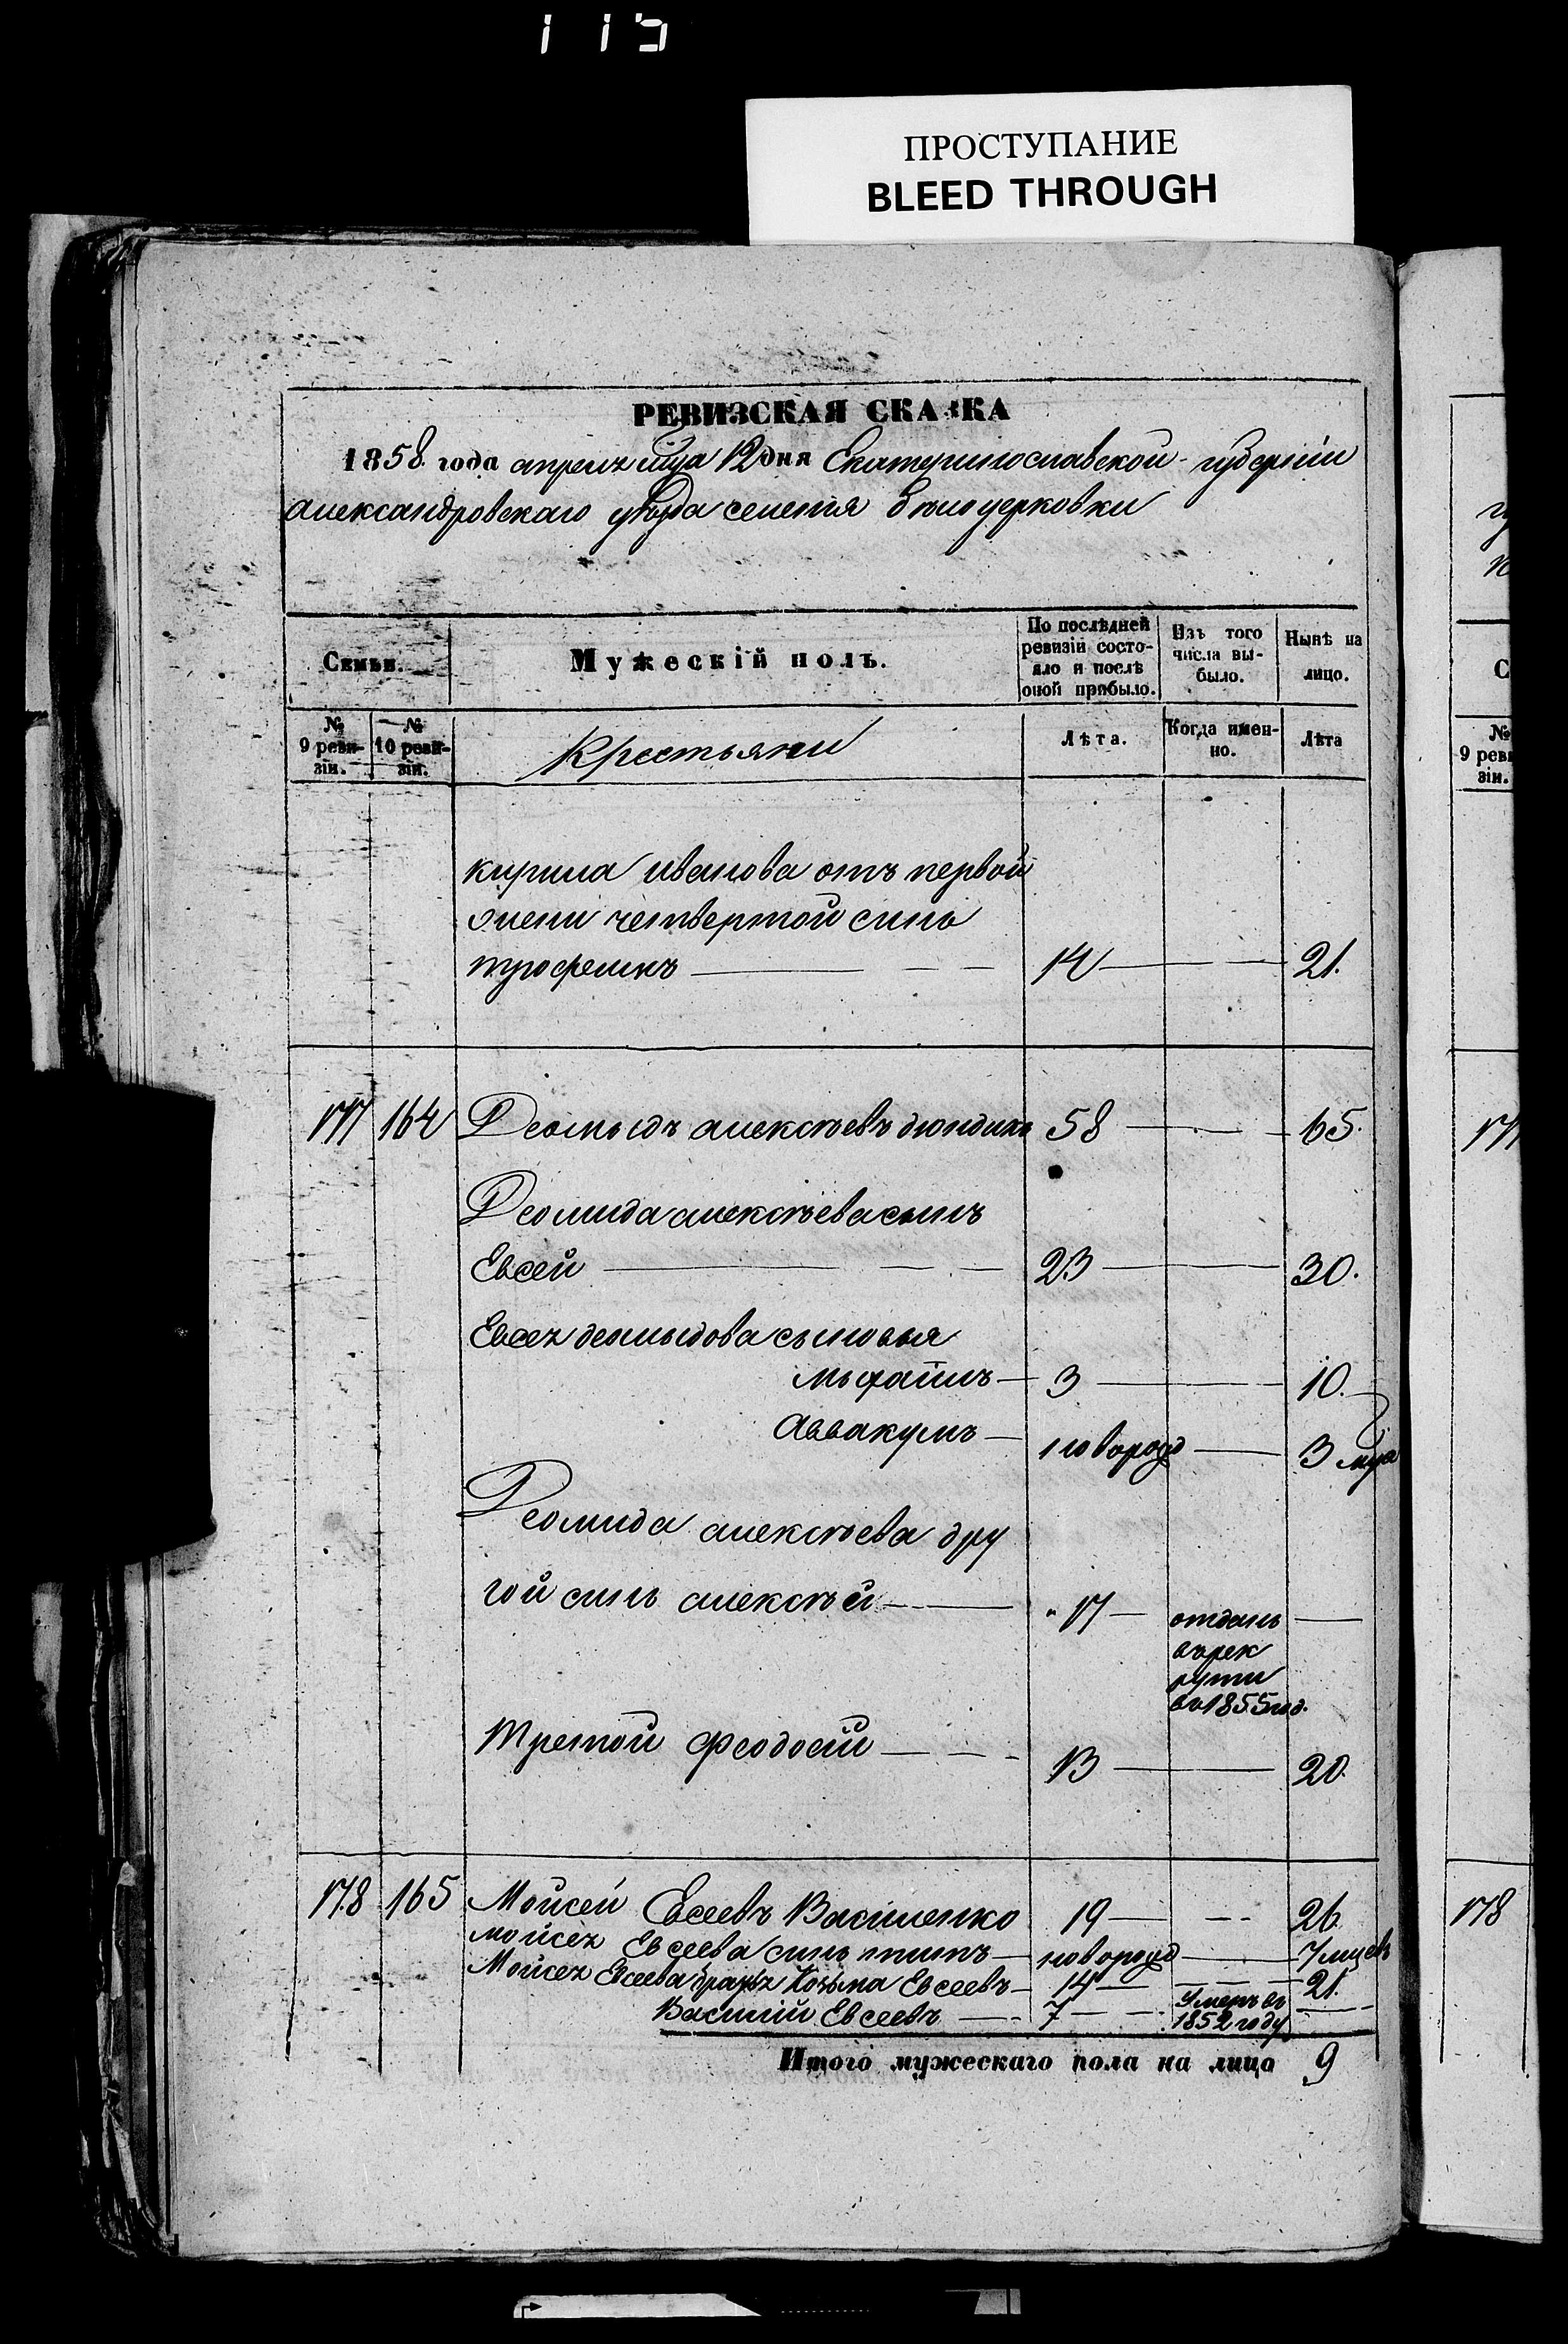 115
ПРОСТУПАНИЕ
BLEED THROUGH
РЕВИЗСКАЯ СКАЗКА
1858 года апреля мца 12 дня Екатеринославской губернии
александровскаго уѣзда селения бѣлоцерковки
Семьи.
Мужескій полъ.
По послѣдней ревизіи состо-
яло и послѣ
оной прибыло.
Изъ того
числа вы-
было.
Нынѣ на
лицо.
№
9 реви-
зіи.
№
10 реви-
зіи.
Крестьяни
Лѣта.
Когда имен-
но.
Лѣта
кирила иванова отъ первой
жени четвертой синъ
трофемъ 14 21.
177 164 Деомыдъ алексѣевъ дюндикъ 58 65.
Деомида алексѣева сынъ
Евсей 23 30.
Евсея деомыдова сыновья
Мыхаилъ 3 10.
Аввакумъ новорожд 3 мца
Деомида алексѣева дру
гой синъ алексѣй 17 отданъ
въ рек
рути
въ 1855 год.
Третой Феодосій 13 20.
178 165 Мойсей Евсеевъ Василенко 19 26.
мойсея Евсеева синъ новорожд 7 мцевъ
Мойсея Евсеева братья Козьма Евсеевъ 14 21.
Василий Евсеевъ 7 Умеръ въ
1852 году
Итого мужескаго пола на лицо 9
№
9 реви
зіи.
177
178